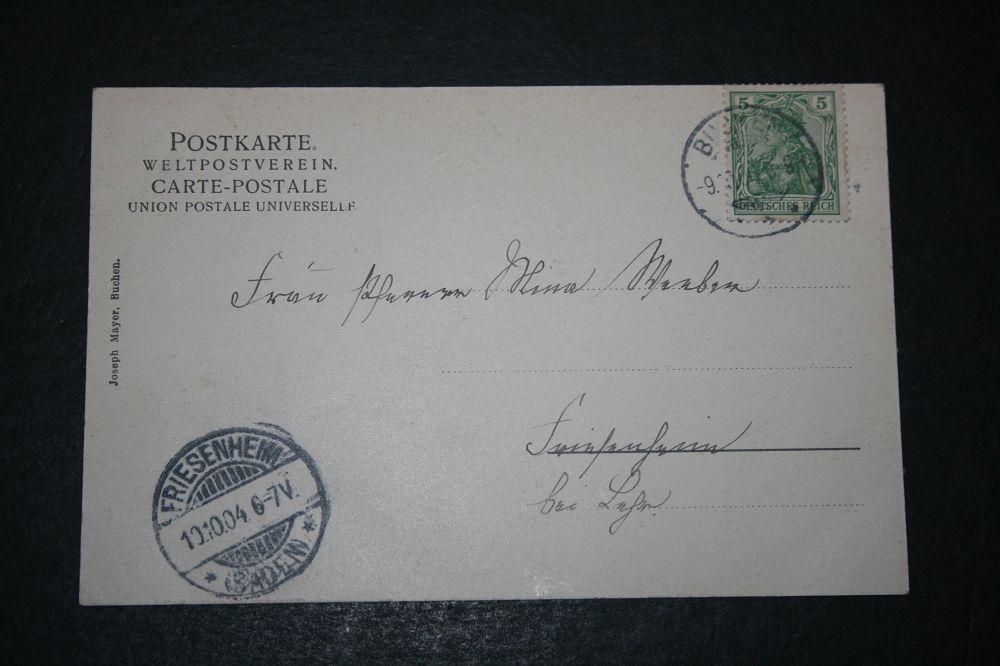 POSTKARTE.
WELTPOSTVEREIN.
CARTE-POSTALE
UNION POSTALE UNIVERSELLE
5 5
DEUTSCHES REICH
-9.
Joseph Mayer, Buchen.
Frau Pfarrer Mina Weeber
Friesenheim
bei Lahr.
FRIESENHEIM
10.10.04 6-7V.
* (BADEN) *